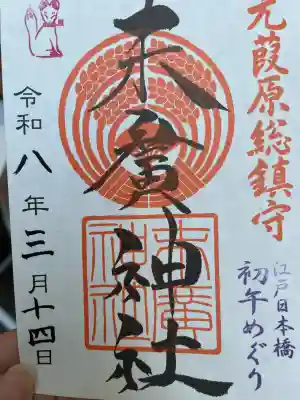 元葭原総鎮守
江戸日本橋
初午めぐり
末廣神社
末廣神社
令和八年三月十四日